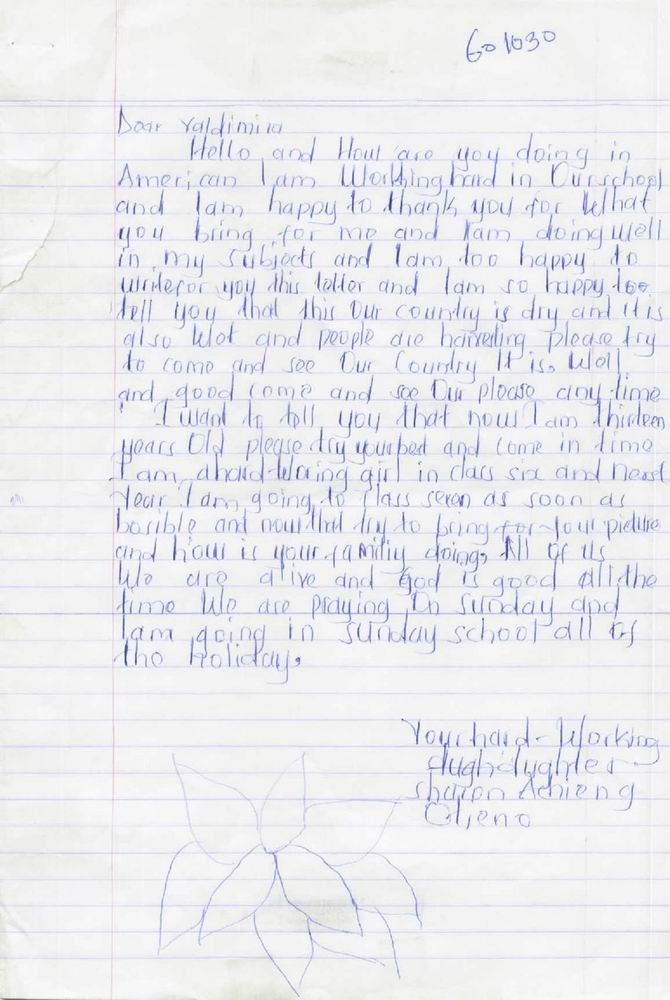 601030
Dear Valdimira
Hello and How are you doing in
American I am Working hard in Our school
and I am happy to thank you for What
you bring for me and I am doing well
in my subjects and I am too happy to
write for you this letter and I am so happy too
tell you that this Our country is dry and it is
also Wet and people are harvesting please try
to come and see Our Country It is Well
and good come and see Our please any time
I want to tell you that now I am thirteen
years Old please try your best and come in time
I am a hard-Woring girl in class six and next
Year I am going to class seven as soon as
bosible and now that try to bring for your picture
and how is your family doing, All of us
We are alive and God is good all the
time We are praying On Sunday and
I am going in Sunday school all of
the holiday.
Your hard-Working
Sharon Achieng
Otieno